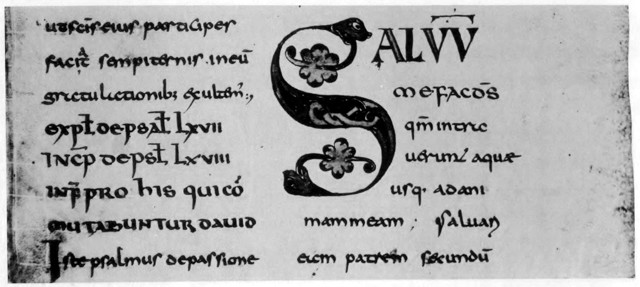 ut sc̄is eius participes
facit sempiternis . in eiū
gratulationib; exultem:,
expl̄ de psal̄ lxvii
INCP̄ de psl̄ lxviii
INP̄ PRO his qui cō
mutabuntur david
Iste psalmus de passione
SALVV̄
me fac d̄s
qm̄ intra
uerunt aquae
usq. ad ani
mam meam ; Saluat
etiam patrem secundū